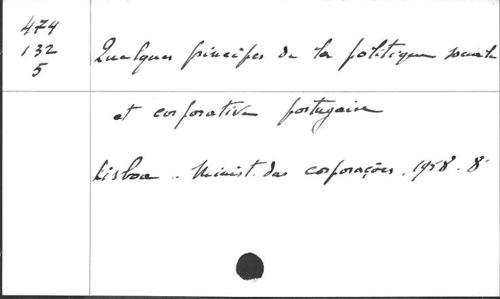 474
132
5
Quelques principes de la politique sociale
et corporative portugaise
Lisboa. Minist. das corporações. 1958. 8º